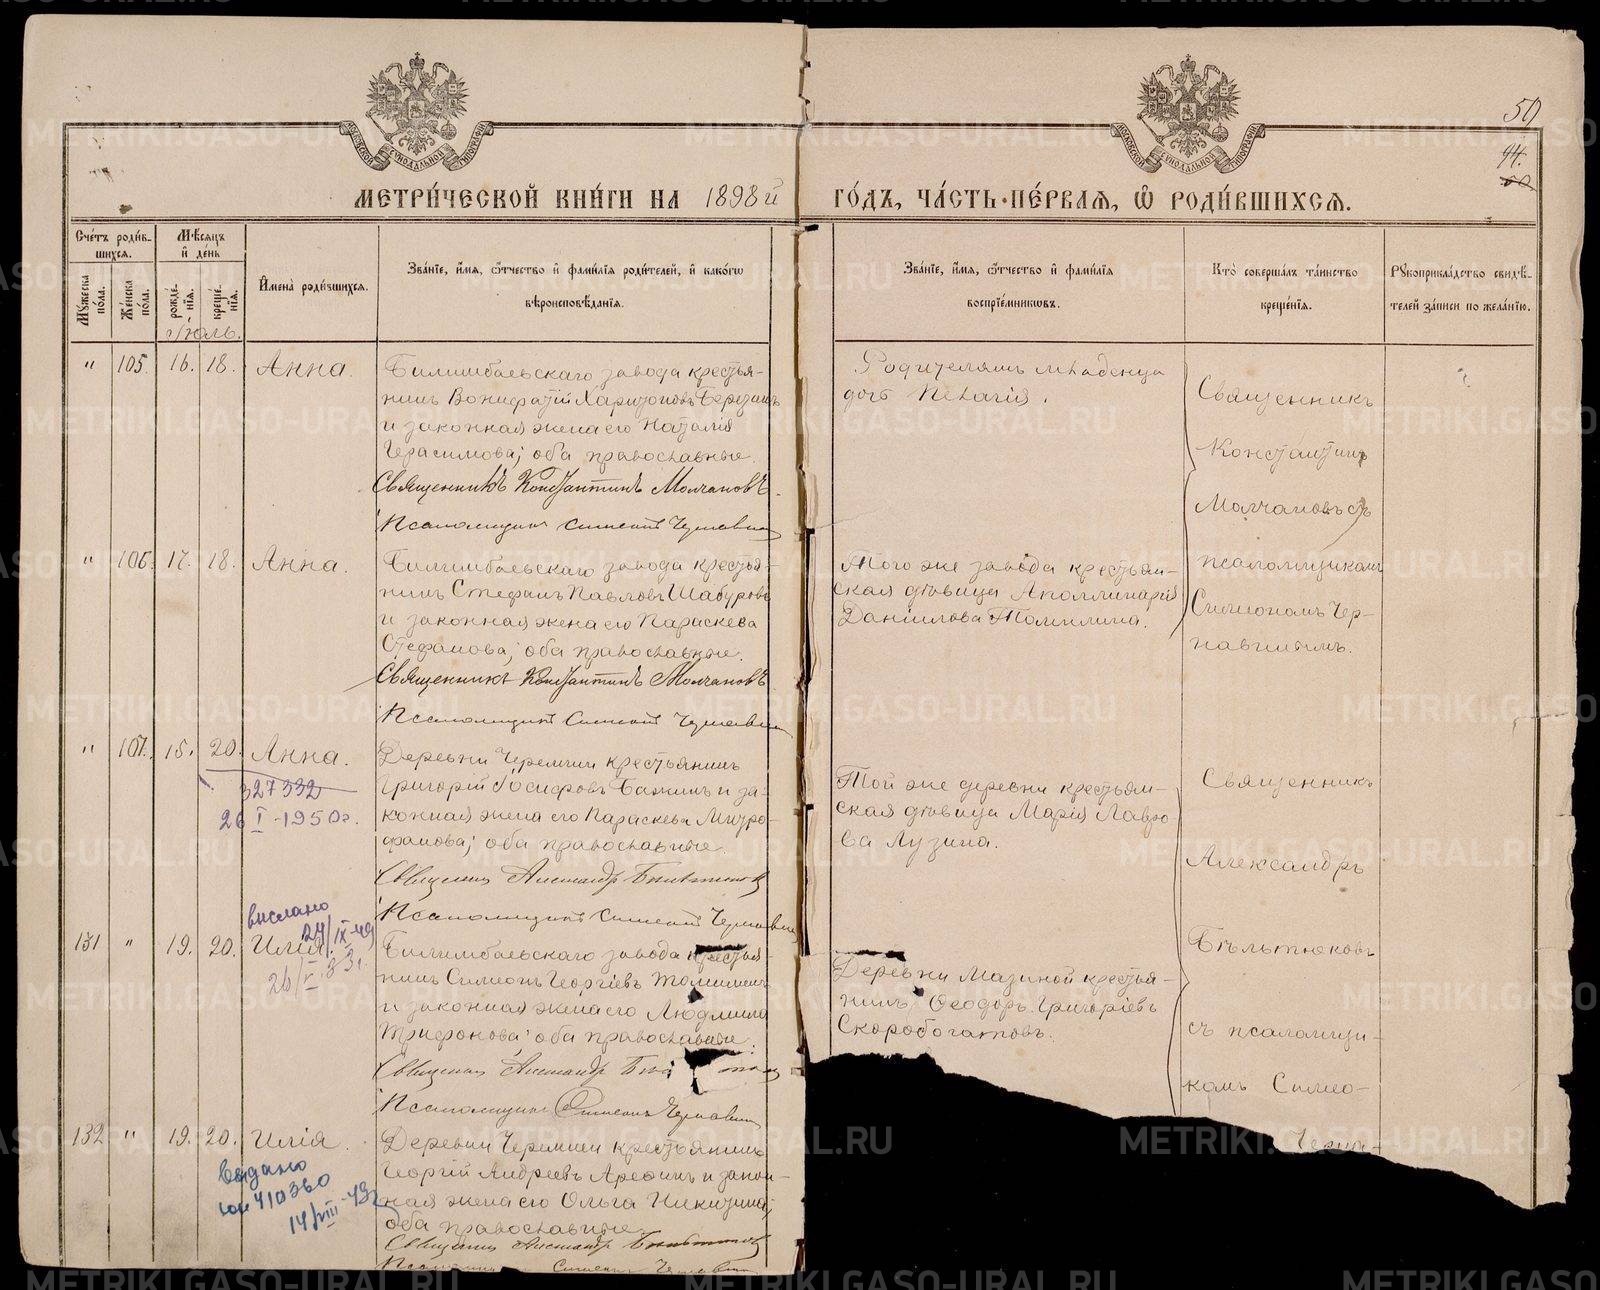 METRIKI.GASO-URAL.RU
59
44.
60
МОСКОВСКОЙ СѴНОДАЛЬНОЙ ТИПОГРАФІИ
МОСКОВСКОЙ СѴНОДАЛЬНОЙ ТИПОГРАФІИ
МЕТРИ́ЧЕСКОЙ КНИ́ГИ НА 1898й ГО́ДЪ, ЧА́СТЬ ПЕ́РВАЯ, Ѽ РОДИ́ВШИХСЯ.
Сче́тъ роди́в-
шихся.
Мꙋ́жеска по́ла.
Же́нска по́ла.
Мѣ́сяцъ и҆ де́нь
рожде́-
нїѧ.
креще́-
нїѧ.
И҆мена̀ роди́вшихся.
Зва́нїе, и҆́мя, ѻ҆́тчество и҆ фами́лїя роди́телей, и҆ како́гѡ
вѣроисповѣ́данїя.
Зва́нїе, и҆́мя, ѻ҆́тчество и҆ фами́лїя
воспрїе́мникѡвъ.
Кто̀ соверша́лъ та́инство
креще́нїя.
Рꙋкоприкла́дство свидѣ́-
телей за́писи по жела́нїю.
Іюль.
" 105. 16. 18. Анна.
Билимбаевскаго завода кресть-
нинъ Вонифатій Харитоновъ Березинъ
и законная жена его Наталія
Герасимова; оба православные.
Священникъ Константинъ Молчановъ.
Псаломщикъ Симеонъ Чернавинъ
Родителямъ младенца
дочь Пелагія.
Священникъ
Константинъ
Молчановъ съ
псаломщикомъ
Симеономъ Чер-
навинымъ.
" 106. 17. 18. Анна.
Билимбаевскаго завода крестья-
нинъ Стефанъ Павловъ Шабуровъ
и законная жена его Параскева
Стефанова; оба православные.
Священникъ Константинъ Молчановъ
Псаломщикъ Симеонъ Чернавинъ
Того же завода крестьян-
ская дѣвица Аполлинарія
Даніилова Томилина.
" 107. 15. 20. Анна.
327332
26 I-1950г.
Деревни Черемши крестьянинъ
Григорій Іосифовъ Бажинъ и за-
конная жена его Параскева Митро-
фанова; оба православные.
Священникъ Александръ Бѣльтюковъ
Псаломщикъ Симеонъ Чернавинъ
Той же деревни крестьян-
ская дѣвица Марія Лавро-
ва Лузина.
Священникъ
Александръ
Бѣльтюковъ
съ псаломщи-
комъ Симео-
Черна-
выслано
24/IX-49
131 " 19. 20. Илія.
26/V 33г.
Билимбаевскаго завода крестья-
нинъ Симеонъ Георгіевъ Томилинъ
и законная жена его Людмила
Трифонова; оба православные.
Священникъ Александръ
Псаломщикъ Симеонъ Чернавинъ
Деревни Мазиной крестья-
нинъ Ѳеодоръ Григоріевъ
Скоробогатовъ.
132 " 19. 20. Илія.
Выдано
юи 410360
14/VIII-43г
Деревни Черемши крестьянинъ
Георгій Андреевъ Арефинъ и закон-
ная жена его Ольга Никитина;
оба православные.
Священникъ Александръ Бѣльтюковъ
Псаломщикъ Симеонъ Чернавинъ